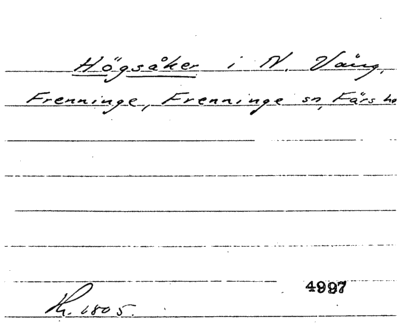 Högsåker i N. Vång,
Frenninge, Frenninge sn, Färs ha
4997
Kr. 1805.